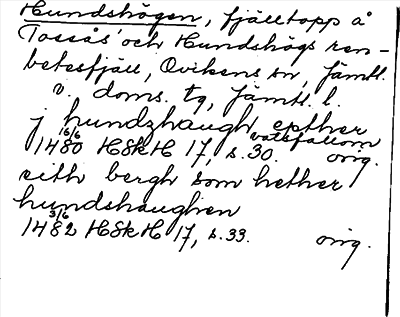 Hundshögen, fjälltopp å
Tossås och Hundshögs ren-
betesfjäll, Ovikens sn, Jämtl.
v. doms. tg, Jämtl. l.
j hundzhaugh epther
vatsfallom
1480 16/6 HSkH 17, s. 30. orig.
eith bergh som hether
hundshaughen
1482 3/6 HSkH 17, s. 33. orig.